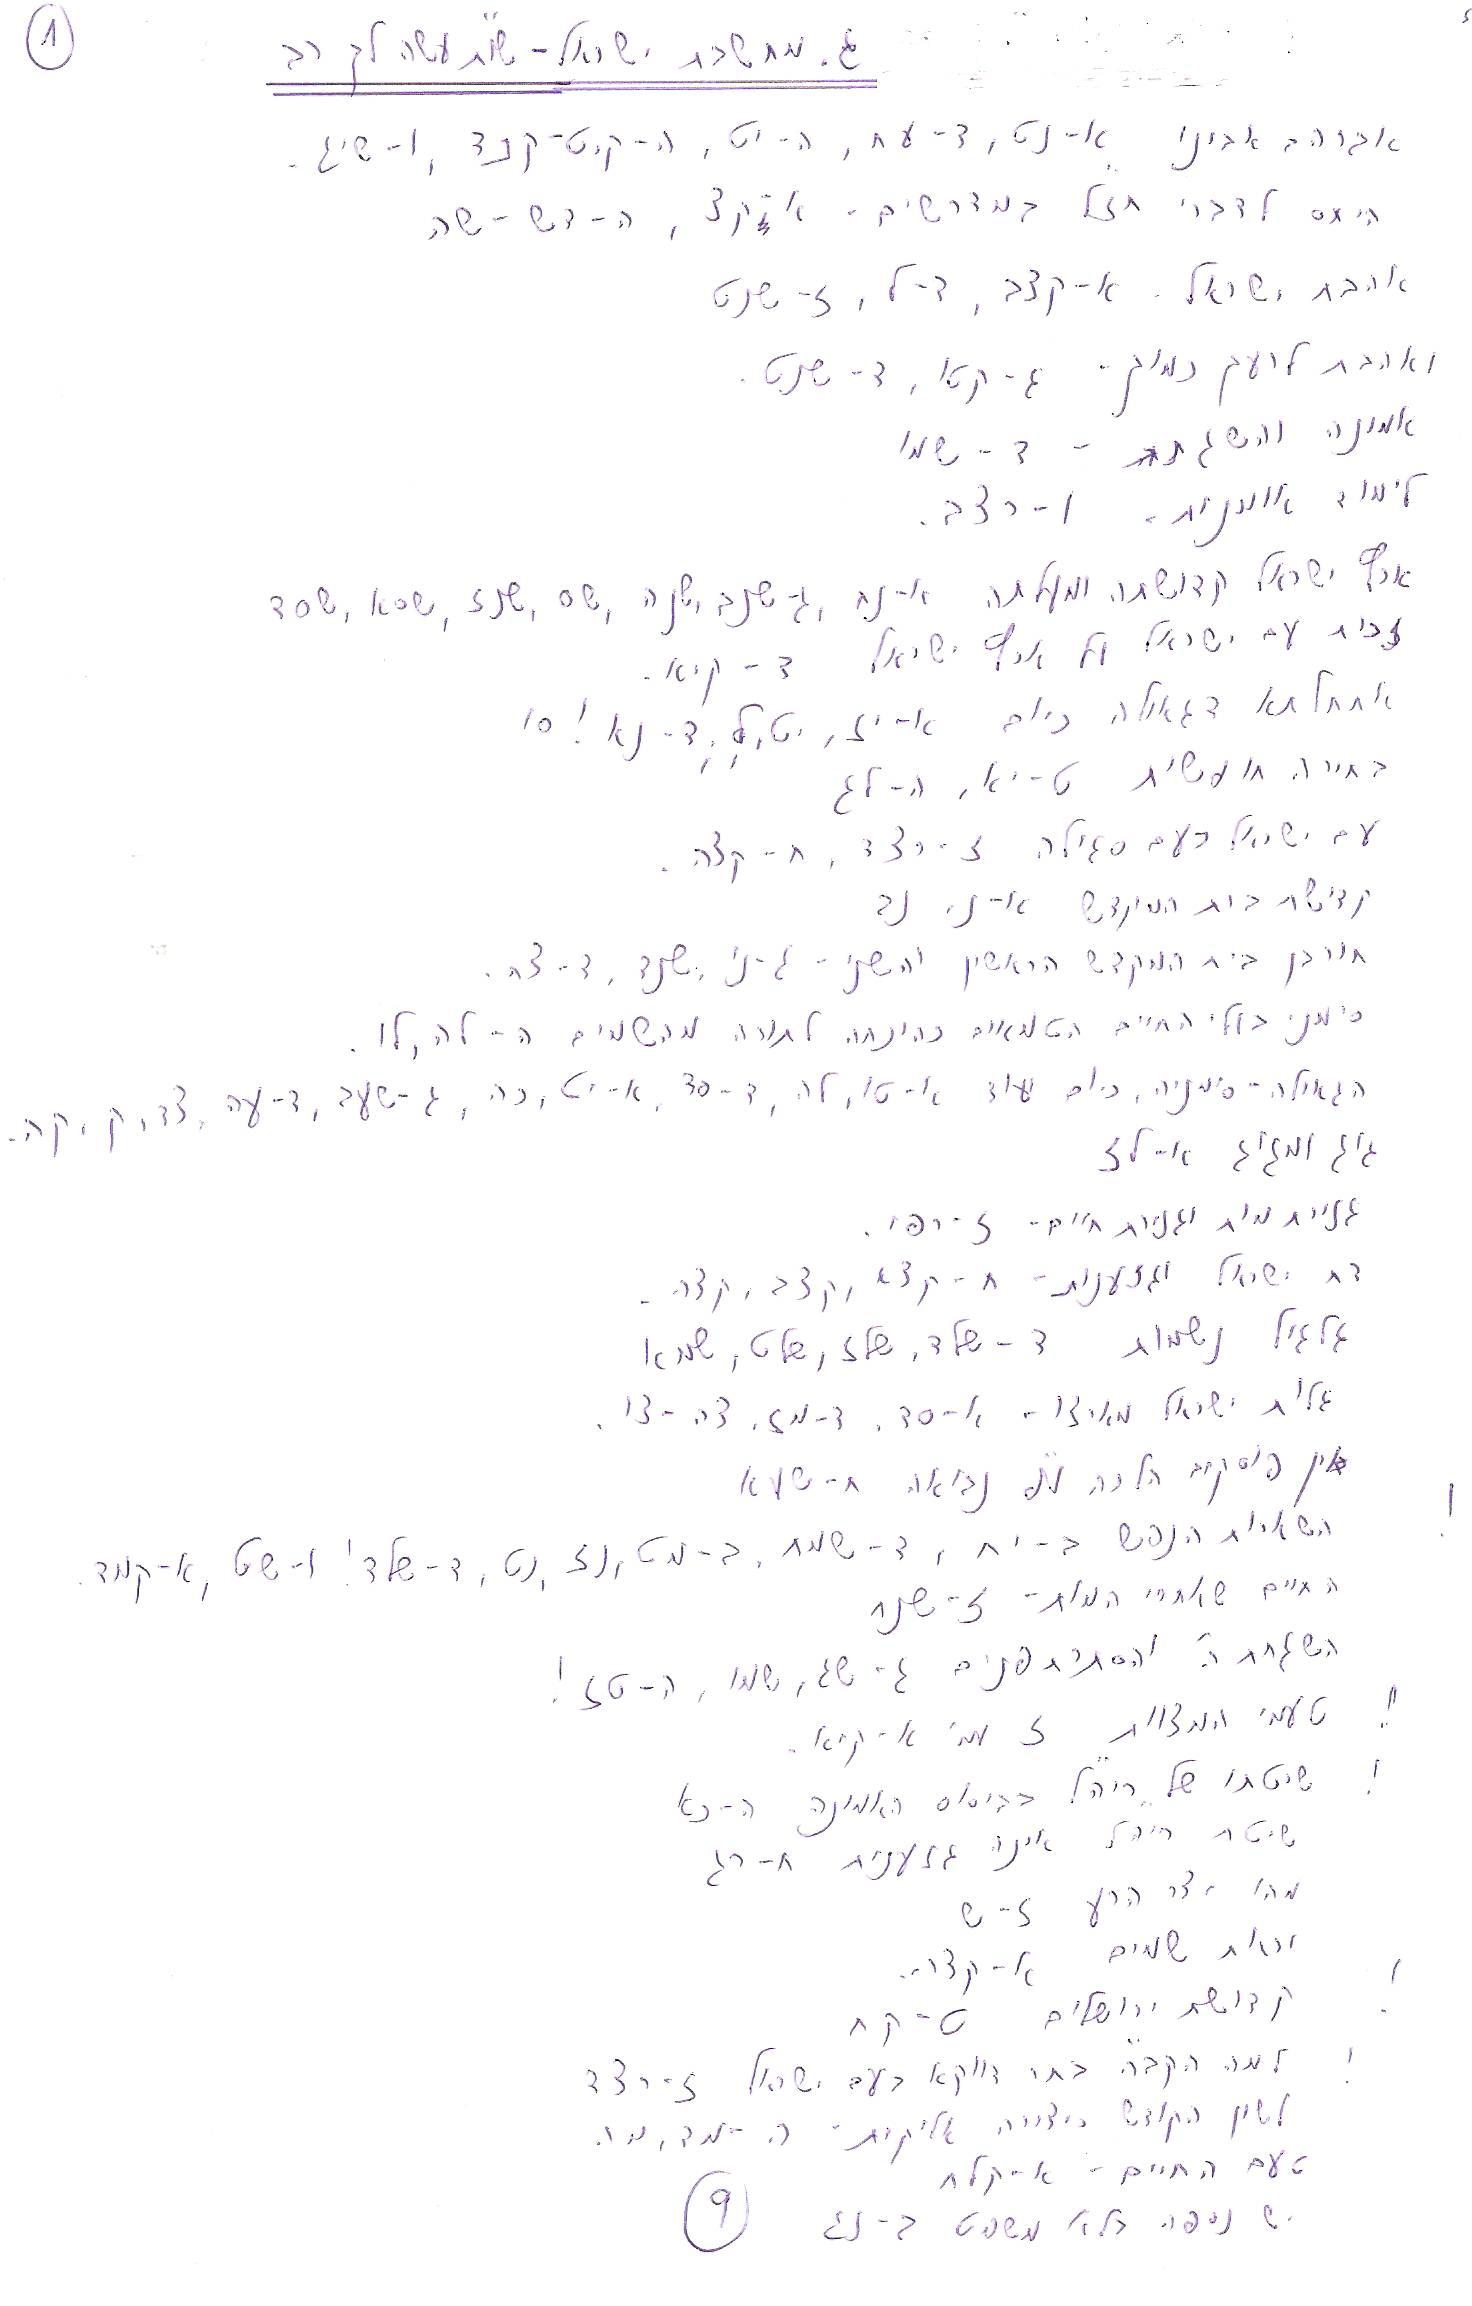 1
ג. מחשבת ישראל - שו"ת עשה לך רב
אברהם אבינו א-נט, ד-עח, ה-יט, ה-קיט-קנד, ו-שיג.
היחס לדברי חז"ל במדרשים - א קצ, ה-דש-שה
אהבת ישראל. א-קצב, ד-ל, ז-שנט
ואהבת לרעך כמוך - ג-קטו, ד-שנט.
אמונה והשגחה - ד-שמו
לימוד אומנות. ו-רצב.
ארץ ישראל קדושתה ומעלתה א-נח, ג-שנב, שנה, שס, שנז, שסא, שסד
זכות עם ישראל על ארץ ישראל ד-קיא.
אתחלתא דגאולה כיום א-יז, יט, ל, ד-נא! סו
בחירה חופשית ט-יא, ה-לג
עם ישראל כעם סגולה ז-רצד, ח-קצה.
קדושת בית המקדש א-נ, נב
חורבן בית המקדש הראשון והשני - ג-נו, שנד, ד-צח.
סימני בעלי החיים הטמאים כהוכחה לתורה מהשמים ה-לה, לו.
הגאולה - סימניה, כיום ועוד א-טו, לה, ד-סד, א-יט, כה, ג-שעב, ד-עה, צד, ק, קה.
גוג ומגוג א-לז
גזירת מות וגזירת חיים - ז-רפו.
דת ישראל וגזענות - ח-קצא, קצב, קצה.
גלגול נשמות ד-שלד, שלז, שלט, שמא
גלות ישראל מארצו - א-סד, ד-מז, צה-צו.
אין פוסקים הלכה ע"פ נבואה ח-שעא
! השארות הנפש ב-יח, ד-שמח, ב-מט, נז, נט, ד-שלד! ו-שט, א-קמד.
החיים שאחרי המות - ז-שנח
השגחת ה' והסתרת פנים ג-שג, שמו, ה-טז!
!! טעמי המצוות ז א-קיא.
! שיטתו של ריה"ל בביסוס האמונה ה-כא
שיטת ריה"ל אינה גזענית ח-רג
מהו יצר הרע ז-ש
יראת שמים א-קצה.
! קדושת ירושלים ט-קח
! למה הקב"ה בחר דווקא בעם ישראל ז-רצד
לשון הקודש כיצירה אלוקית - ה-מד, מה.
טעם החיים - א-קלח
יש נספה בלא משפט ב-נג
9